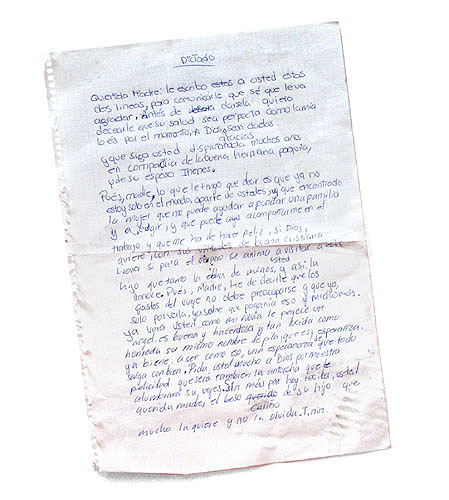 Dictado
Querida Madre: le escribo estas a usted estas
dos lineas, para comunicarle que sé que le va
agradar. Antes de darsela quiero
decearle que su salud sea perfecta como la mia
lo es por el momento, A Dios sean dadas
gracias
y que siga usted disfrutandola muchos años
en compañia de la buena hermana paquita,
y de su esposo
Pués, madre, lo que le tengo que decir es que ya no
estoy solo en el mundo, aparte de ustedes, y que encontrado
la mujer que me puede ayudar a fundar una familia
y a, y que puede muy acompañarme en el
trabajo y que me ha de hacer feliz, si Dios,
quiere, con sus virtudes de buena cristiana
haver si para el se anima a visitar a este
usted
hijo que tanto la de menos, y así la
conoce. Pués, Madre, he de decirle que los
gastos del viaje no debe preocuparse y que yo,
solo por verla, ya sabe que pagaria eso y mucho más.
ya verá usted como mi novia le parece un
angel. es buena y hacendosa y tan lucida como
honrada su mismo nombre de pila que es esperanza.
ya biene. a ser como eso, una esperanza de que todo
salga tan bien. Pida usted mucho a Dios por nuestra
felicidad que será también la antorcha que le
alumbrará su vejes. Sin más por hoy reciba, usted
querida madre, el beso querido de su hijo que
cariño
mucho la quiere y no la olvida. T. nin